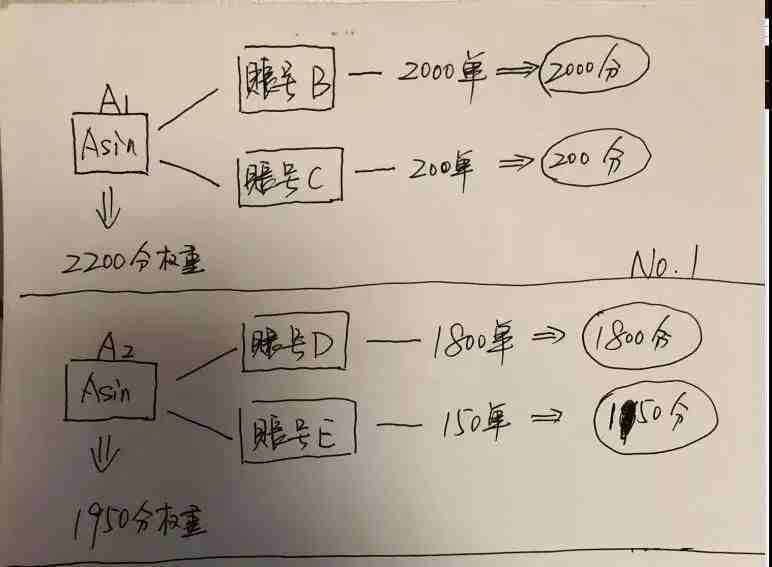 A1
Asin
賬号B — 2000单 ⇒ 2000分
賬号C — 200单 ⇒ 200分
⇓
2200分权重
No.1
A2
Asin
賬号D — 1800单 ⇒ 1800分
賬号E — 150单 ⇒ 150分
⇓
1950分权重